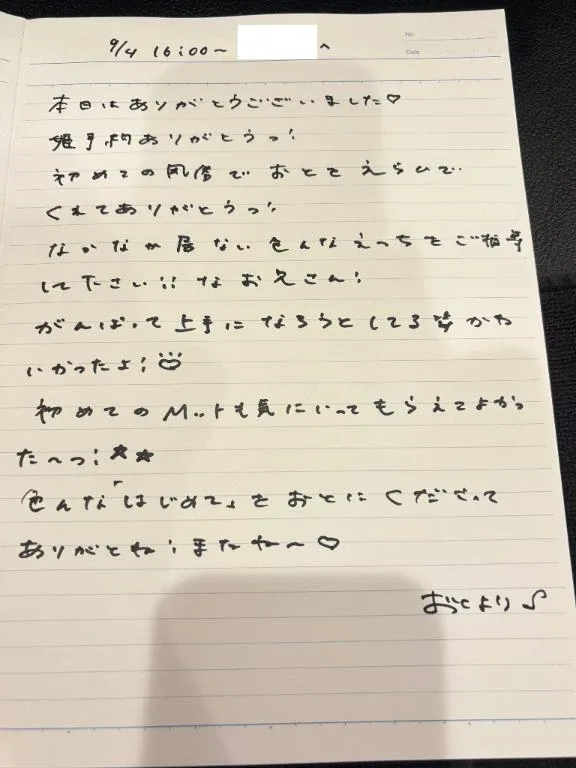 9/4 16:00〜 へ
No.
Date
本日はありがとうございました♡
姫予約ありがとうっ!
初めての風俗でおとをえらんで
くれてありがとうっ!
なかなか居ない色んなえっちをご指導
して下さい!!なお兄さん!
がんばって上手になろうとしてる姿かわ
いかったよ!
初めてのMットも気にいってもらえてよかっ
た〜っ!★★
色んな「はじめて」をおとにくださって
ありがとね!またね〜♡
おとより♪